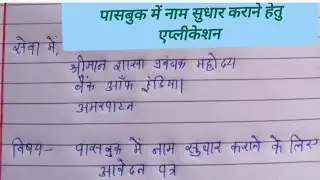 पासबुक में नाम सुधार कराने हेतु
एप्लीकेशन
सेवा में,
श्रीमान शाखा प्रबंधक महोदय
बैंक ऑफ इंडिया।
अमरपाटन
विषय- पासबुक में नाम सुधार कराने के लिए
आवेदन पत्र